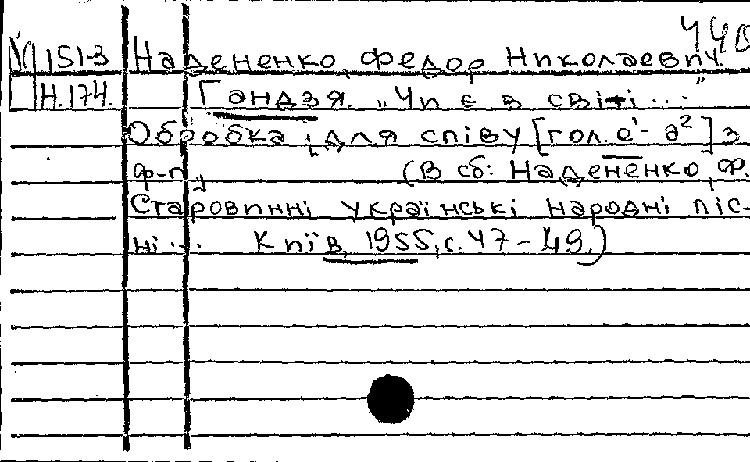 440
№ 151-3 Надененко, Федор Николаевич.
Н.174. Гандзя. „Чи є в світі..."
Обробка для співу [гол. е¹- а²] з
ф-п. (В сб: Надененко, Ф.
Старовинні українські народні піс-
ні... Київ, 1955, с. 47-49.)